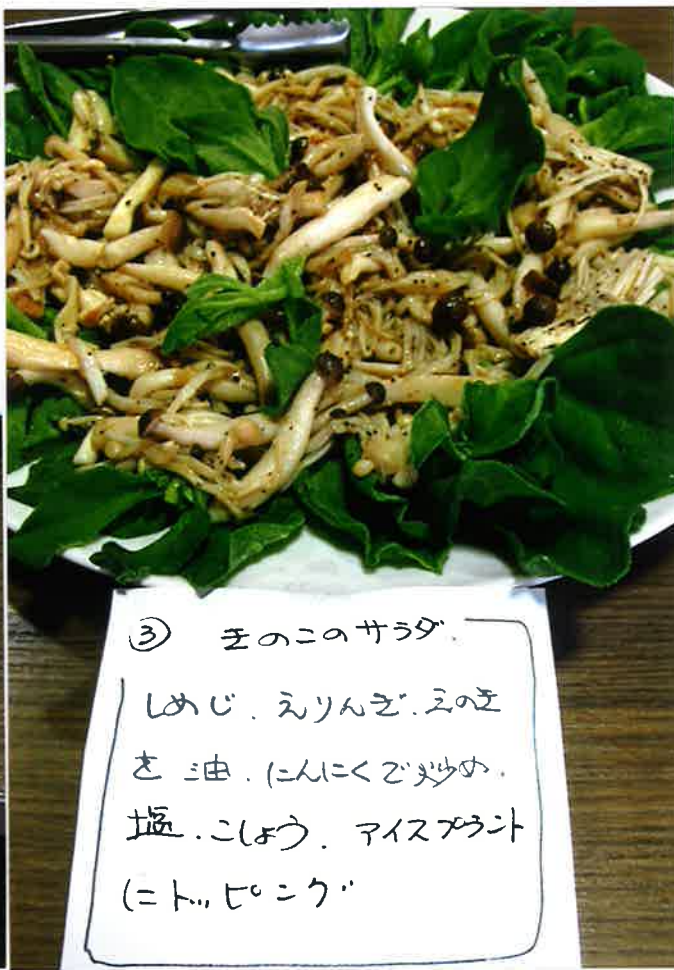 ③ きのこのサラダ.
しめじ.えりんぎ.えのき
を 油.にんにくで炒め.
塩.こしょう. アイスプラント
にトッピング